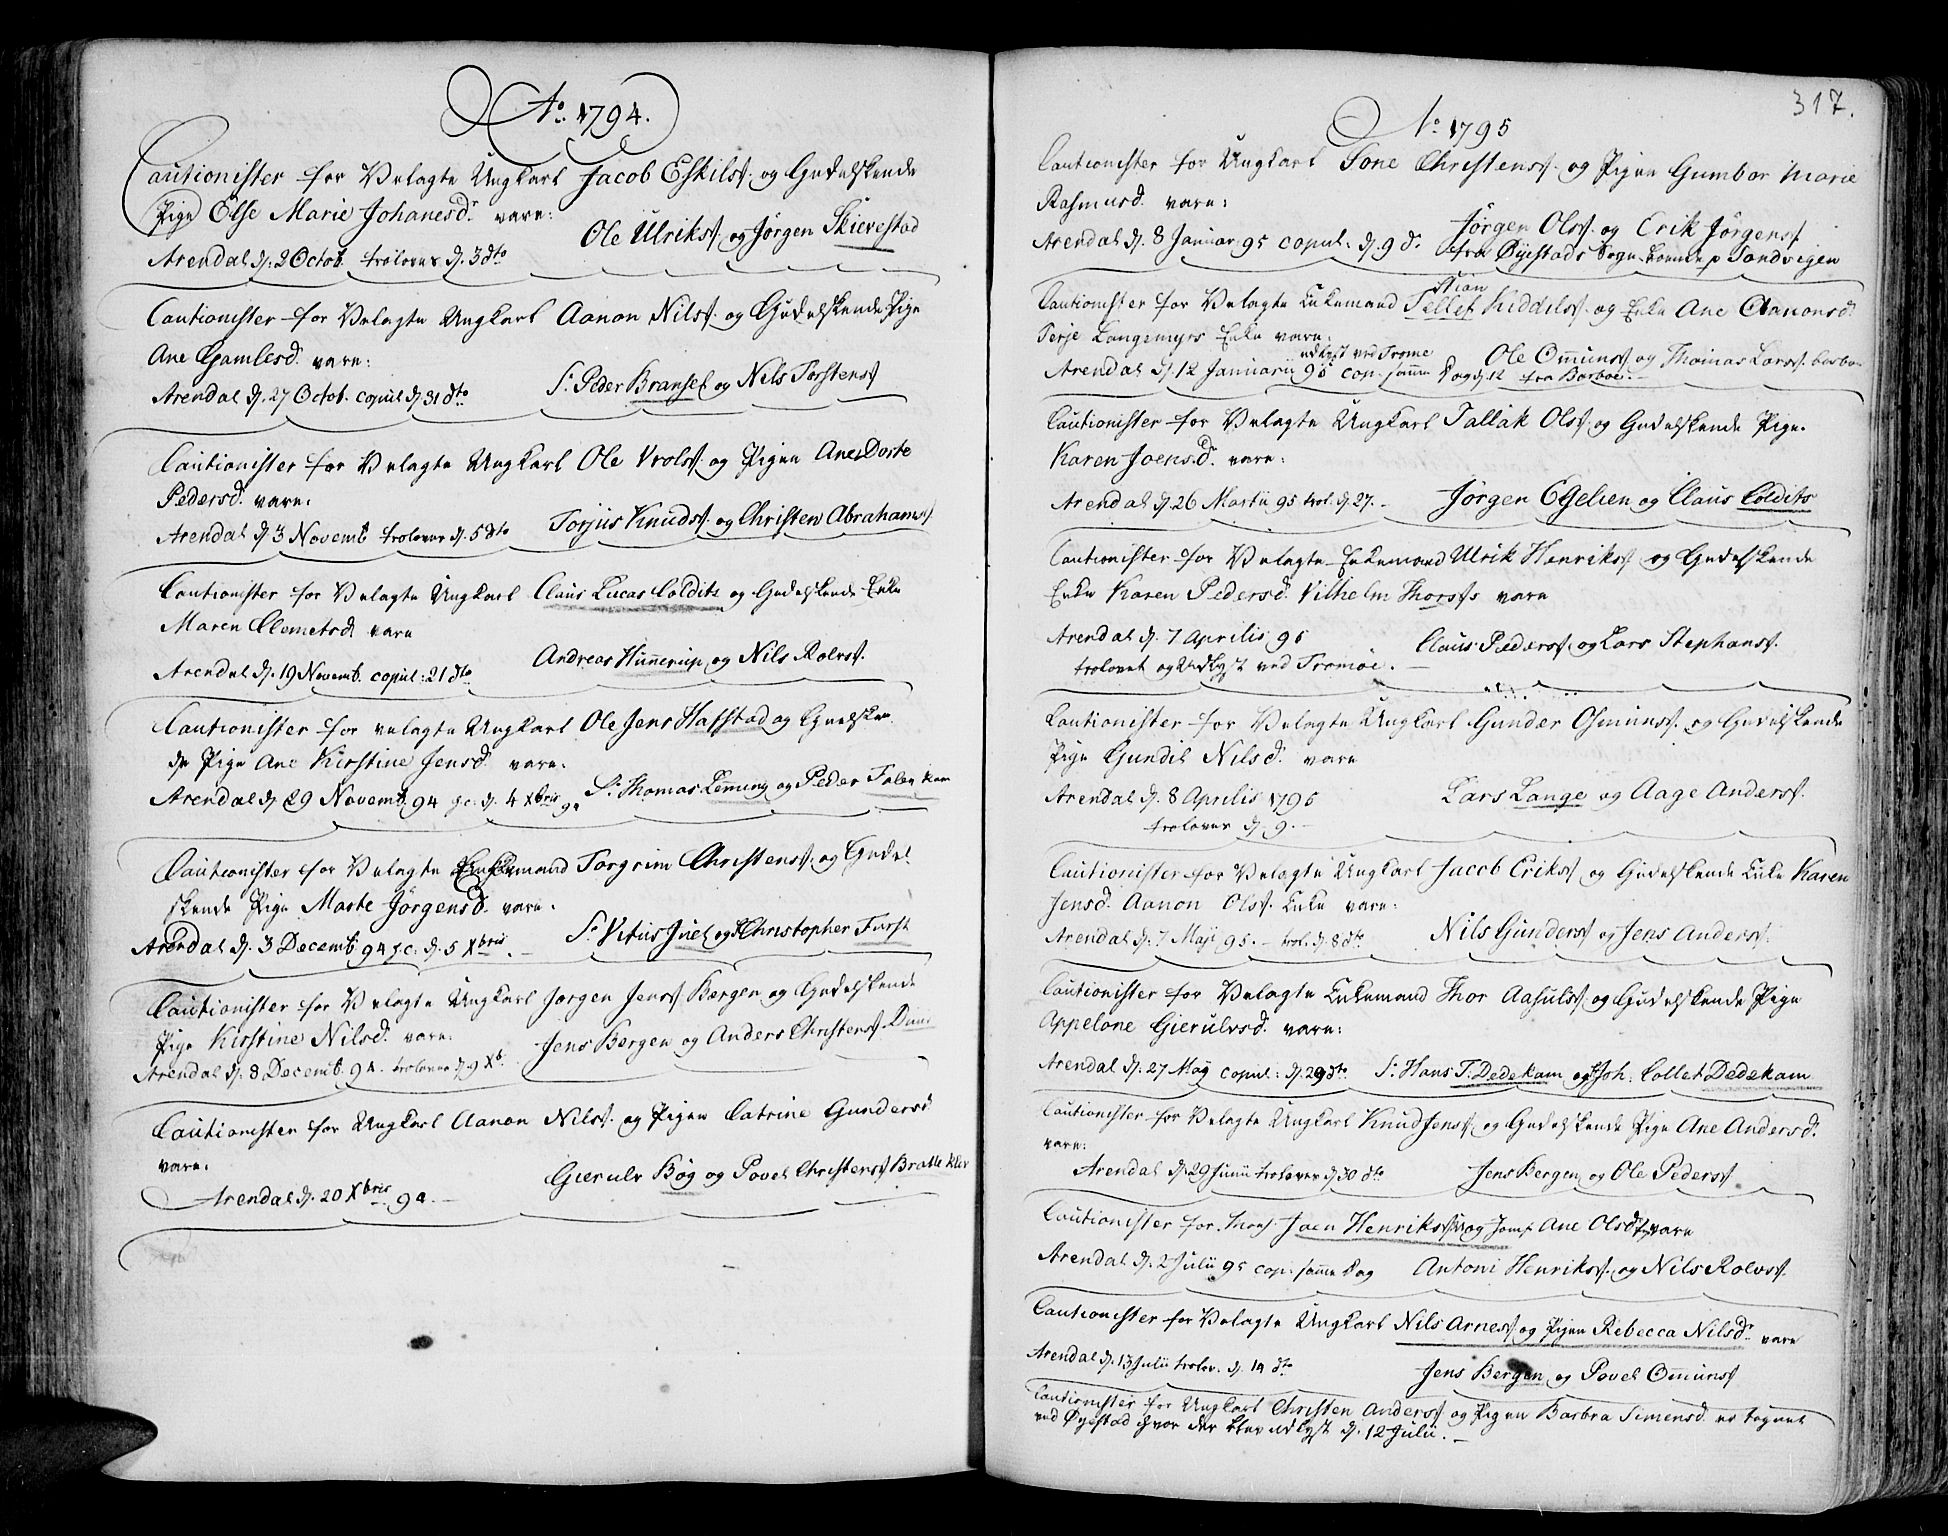 Ao. 1794.
Cautionister for Velagte Ungkarl Jacob Eskils. og Gudelskende
Pige Else Marie Johanesd. vare:
Ole Ulriks. og Jørgen Skievestad
Arendal d. 2 Octob. trolover d. 3 dto
Cautionister for Velagte Ungkarl Aanon Nils. og Gudelskende Pige
Ane Gamlesd. vare:
Sr. Peder Bransef og Nils Torstens.
Arendal d. 27 Octob. copul d. 31 dto
Cautionister for Velagte Ungkarl Ole Vrols. og Pigen Ane Dorte
Pedersd. vare:
Torjus Knuds. og Christen Abrahams.
Arendal d. 3 Novemb trolover d. 5 dto
Cautionister for Velagte Ungkarl Claus Lucas Colditz og Gudelskende Enke
Maren Clemetsd. vare
Andreas Hunnerup og Nils Rolvs.
Arendal d. 19 Novemb. copul: 21 dto
Cautionister for velagte Ungkarl Ole Jens Hafstad og Gudelsken
de Pige Ane Kirstine Jensd. vare:
Sr. Thomas Lemming og Peder Falenkam
Arendal d. 29 Novemb. 94 d. 4 Xbris 94
Cautionister for Velagte Enkemand Torgrim Christens. og Gudel
skende Pige Marte Jørgensd. vare.
Sr. Vitus Juel og Christopher Furst
Arendal d. 3 Decemb. 94 d. 5 Xbris.
Cautionister for Velagte Ungkarl Jørgen Jens. Bergen og Gudelskende
Pige Kirstine Nilsd. vare:
Jens Bergen og Anders Christens.
Arendal d. 8 Decemb. 94. trolover d. 9 Xb.
Cautionister for Ungkarl Aanon Nils. og Pigen Catrine Gundersd
vare:
Gierulv Bøg og Povel Christens. Bratte klev
Arendal d. 20 Xbris 94.
317.
Ao. 1795
Cautionister for Ungkarl Tone Christens. og Pigen Gumbor Marie
Rasmusd. vare:
Jørgen Ols. og Erik Jørgens.
Arendal d. 8 Januar 95 copul: d. 9 d. fra Øyestads Sogn boende p Sandvigen
Stian
Cautionister for Velagte Enkemand Tellef Kiddels. og Enke Ane Aanonsd.
Terje Langemyrs Enke vare:
udlyst ved Trome
Ole Omuns. og Thomas Lars.
Arendal d. 12 Januarii 95 cop. samme Dag d. 12 fra Barboe.
Cautionister for Velagte Ungkarl Tallak Ols. og Gudelskende Pige
Karen Joensd. vare:
Arendal d. 26 Martii 95 trol. d. 27. Jørgen Egelien og Claus Coldits
Cautionister for Velagte Enkemand Ulrik Henriks. og Gudelskende
Enke Karen Pedersd. Vilhelm Thors. vare
Arendal d. 7 Aprilis 95 Claus Peders. og Lars Stephans.
trolovet og Udlyst ved Tromøe.
Cautionister for Velagte Ungkarl Gunder Osmuns. og Gudelskende
Pige Gundil Nilsd. vare
Arendal d. 8 Aprilis 1795 Lars Lange og Aage Anders.
trolover d. 9.
Cautionister for Velagte Ungkarl Jacob Eriks. og Gudelskende Enke Karen
Jensd. Aanon Ols. Enke vare:
Arendal d. 7 Maji 95. trol. d. 8 dto. Nils Gunders. og Jens Anders.
Cautionister for Velagte Enkemand Thor Aasuls. og Gudelskende Pige
Appelone Gierulvsd. vare:
Arendal d. 27 May copul: d. 29 dto Sr. Hans T. Dedekam og Joh: Collet Dedekam
Cautionister for Velagte Ungkarl Knud Jens. og Gudelskende Pige Ane Andersd.
vare:
Arendal d. 29 Junii trolover d. 30 dto Jens Bergen og Ole Peders.
Cautionister for Mons. Joen Henriks. og Jomf. Ane Olsd. vare
Arendal d. 2 Julii 95 cop. samme Dag Antoni Henriks. og Nils Rolvs.
Cautionister for Velagte Ungkarl Nils Arnes. og Pigen Rebecca Nilsd. vare
Arendal d. 13 Julii trolov. d. 14 dto
Jens Bergen og Povel Omuns.
Cautionister for Ungkarl Christen Anders. og Pigen Barbra Simensd. er tegnet
ved Øyestad hvor der blev udlyst d. 12 Julii.